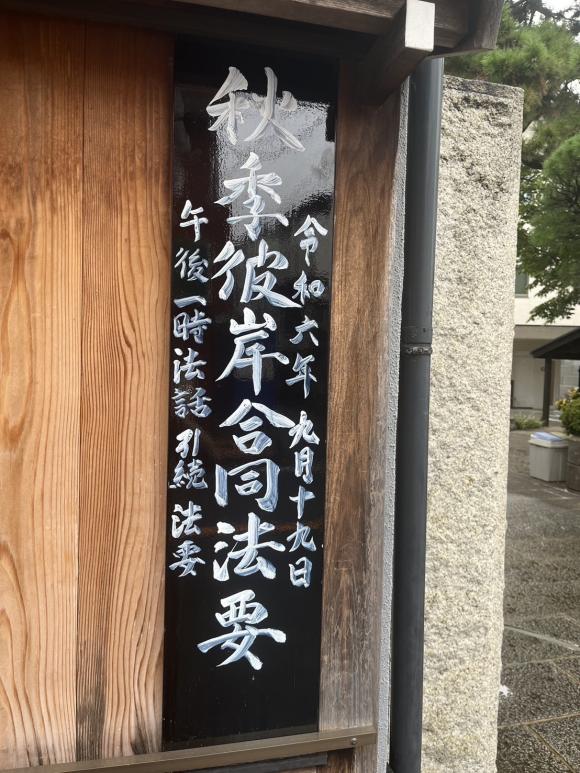 令和六年 九月十九日
秋季彼岸合同法要
午後一時法話 引続 法要